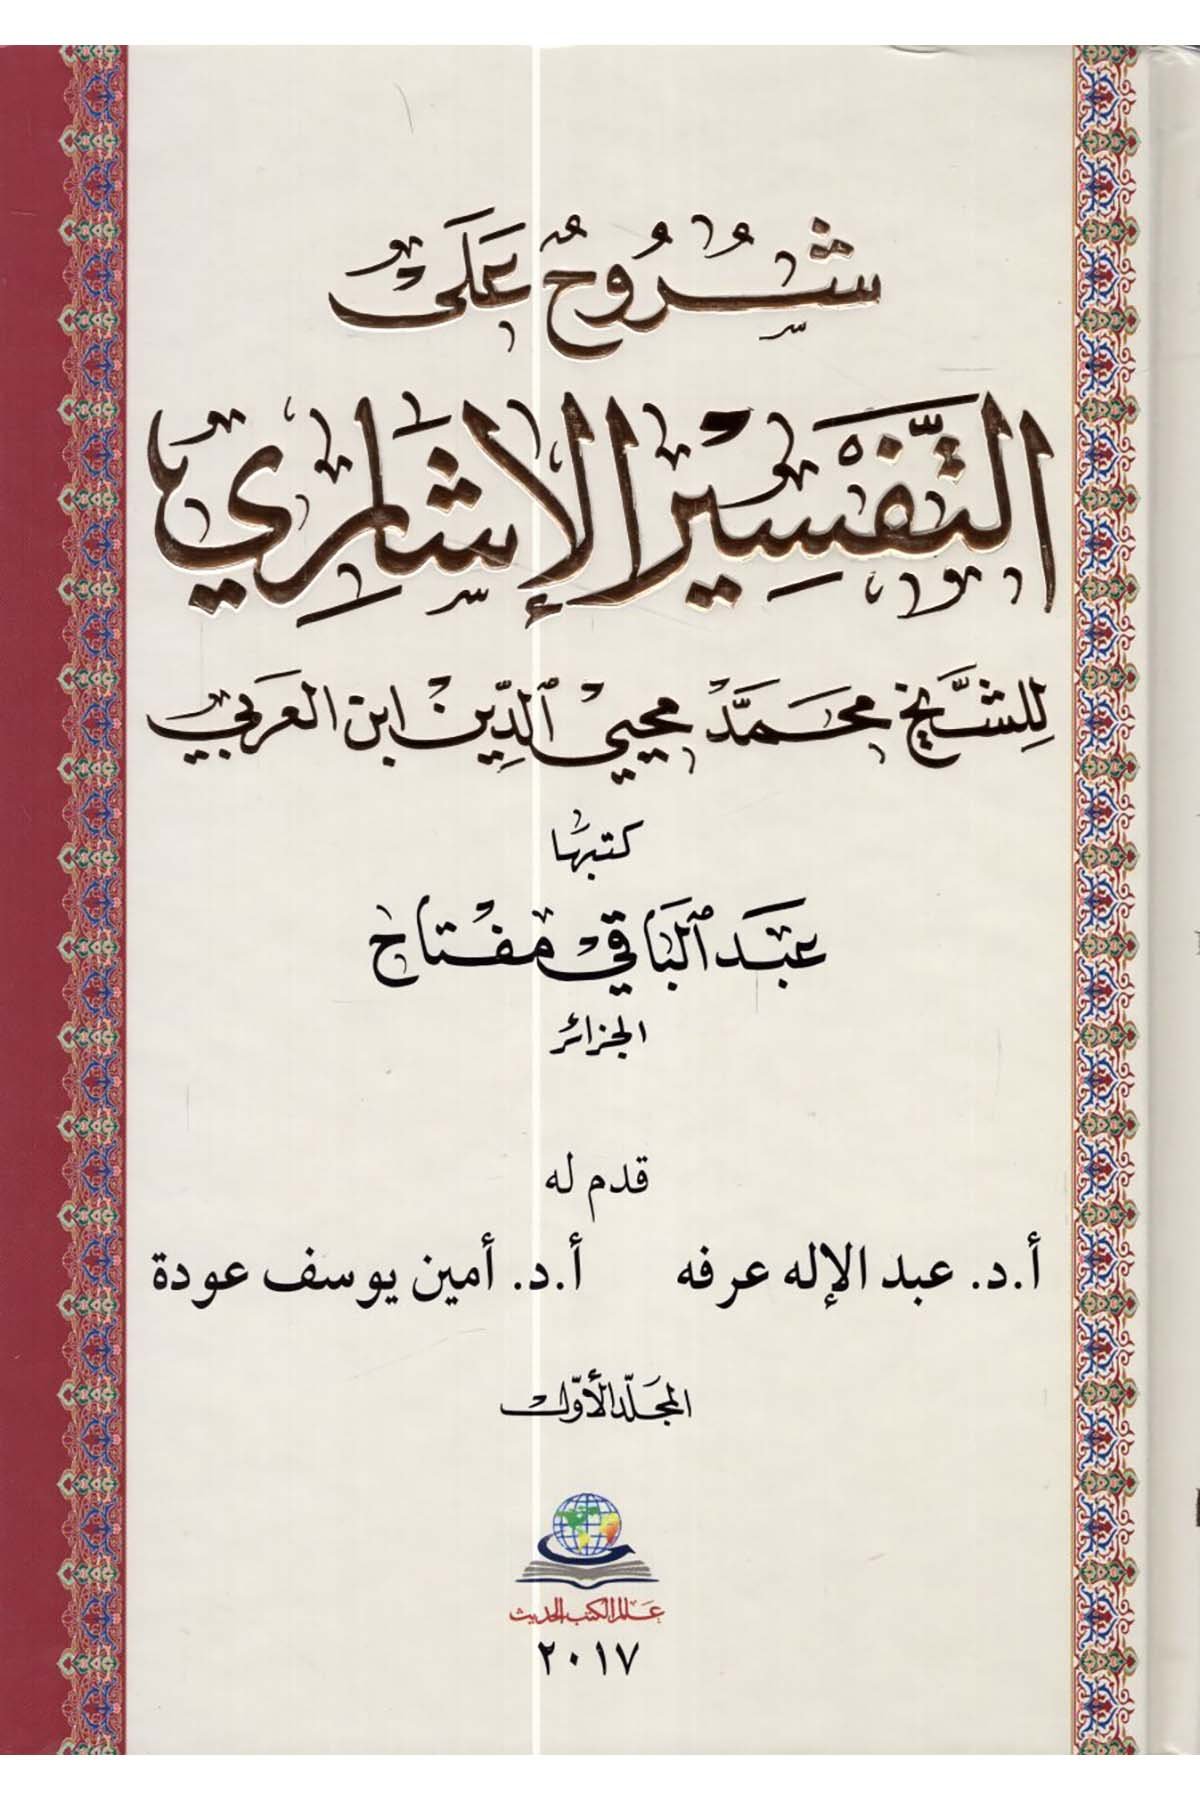 شُرُوحٌ عَلَى
التَّفْسِيرِ الإِشَارِي
لِلشَّيْخِ مُحَمَّد مُحْيِي ٱلدِّينْ ابْن العَرَبِي
كتبها
عَبْد ٱلْبَاقِي مِفْتَاح
الجزائر
قدم له
أ.د. عبد الإله عرفه أ.د. أمين يوسف عودة
المجَلّد الأوّل
عالم الكتب الحديث
٢٠١٧